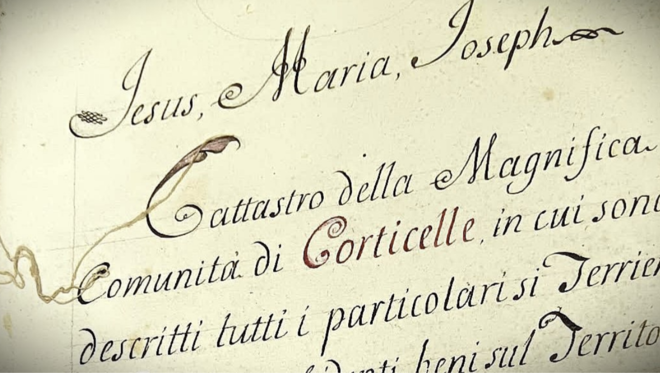 Jesus, Maria, Joseph
Cattastro della Magnifica
Comunità di Corticelle, in cui sono
descritti tutti i particolari si Terrieri
beni sul